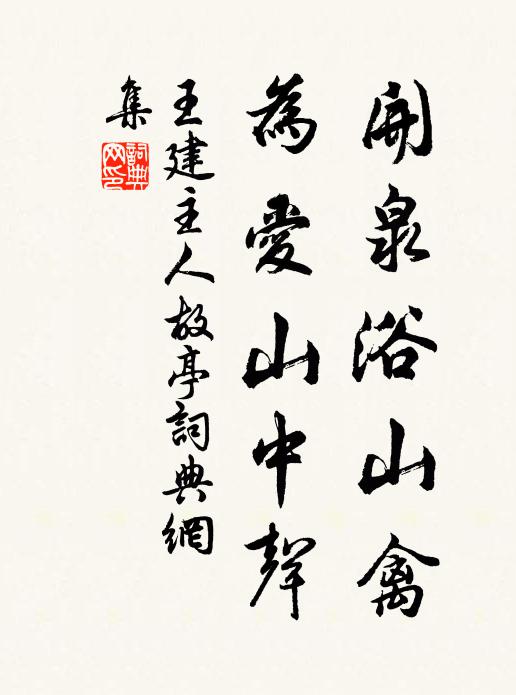 開泉浴山禽
為愛山中聲
王建主人故亭詞典網
集
詞典
网印